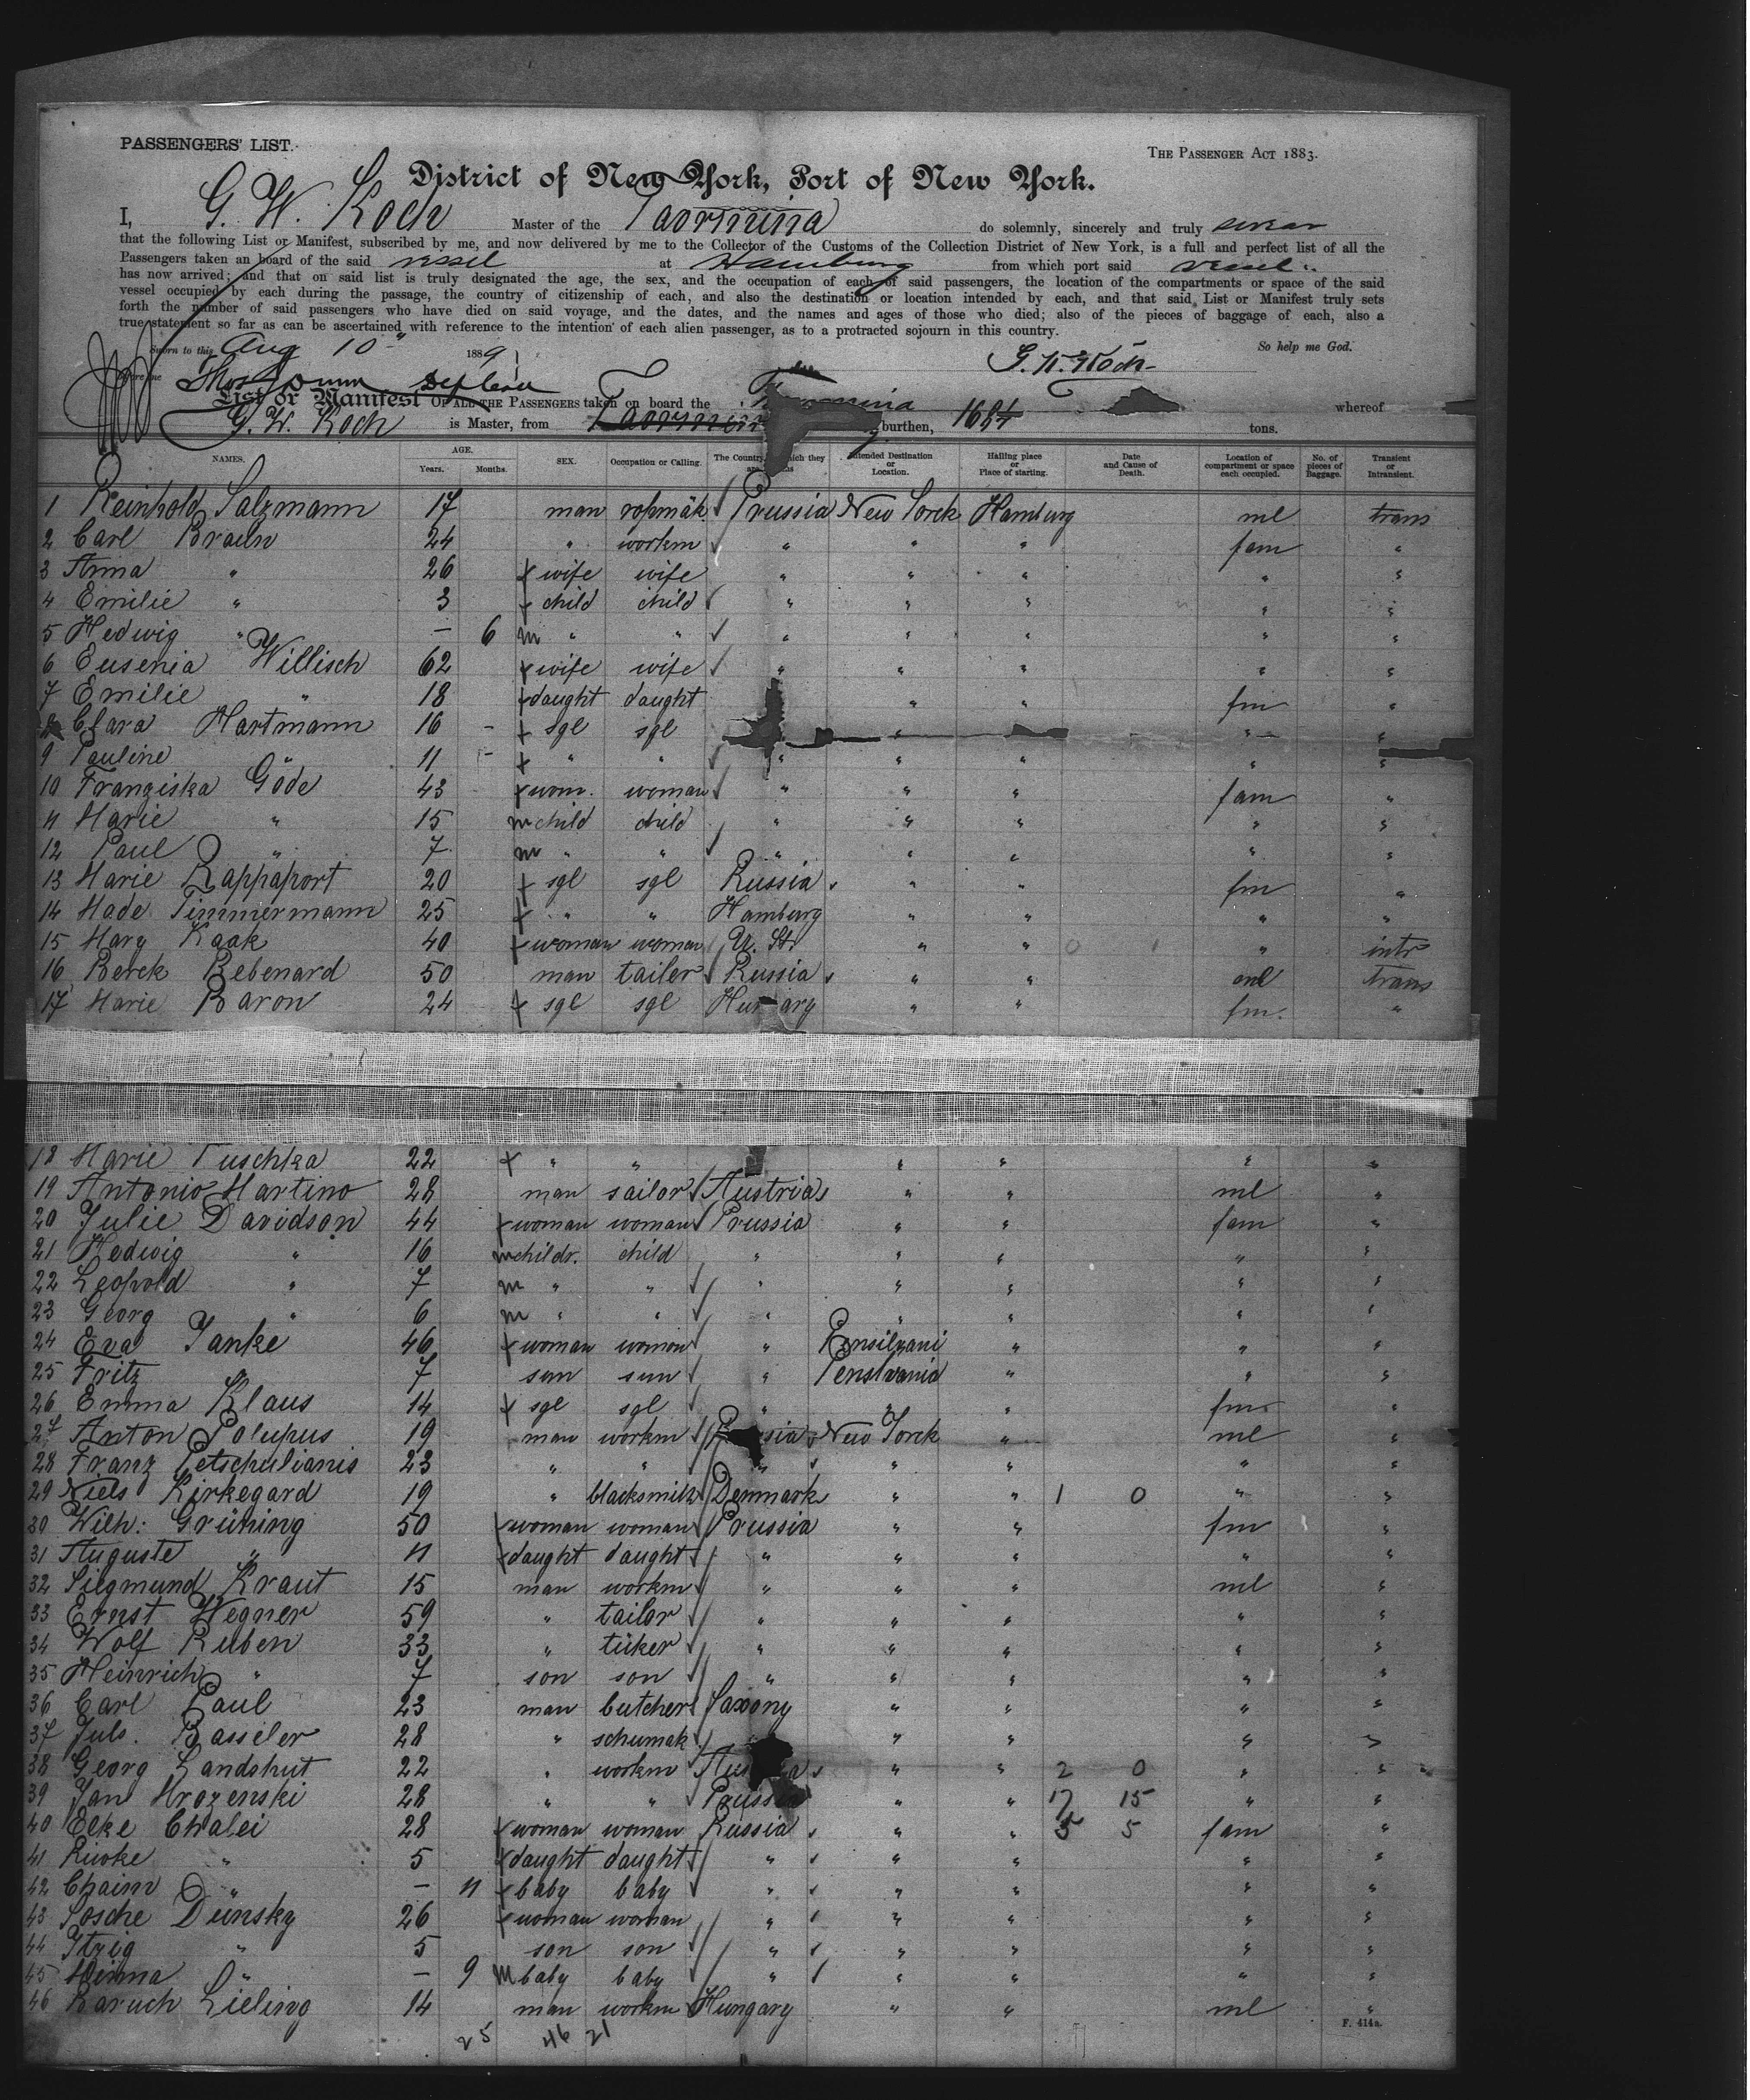 PASSENGERS' LIST.
THE PASSENGER ACT 1883.
District of New York, Port of New York.
I, G. W. Koch Master of the Taormina do solemnly, sincerely and truly swear
that the following List or Manifest, subscribed by me, and now delivered by me to the Collector of the Customs of the Collection District of New York, is a full and perfect list of all the
Passengers taken on board of the said vessel at Hamburg from which port said vessel
has now arrived; and that on said list is truly designated the age, the sex, and the occupation of each of said passengers, the location of the compartments or space of the said
vessel occupied by each during the passage, the country of citizenship of each, and also the destination or location intended by each, and that said List or Manifest truly sets
forth the number of said passengers who have died on said voyage, and the dates, and the names and ages of those who died; also of the pieces of baggage of each, also a
true statement so far as can be ascertained with reference to the intention of each alien passenger, as to a protracted sojourn in this country.
Sworn to this Aug 10 1889 So help me God.
G. W. Koch
before me
List or Manifest OF ALL THE PASSENGERS taken on board the Taormina whereof
G. W. Koch is Master, from burthen, 1684 tons.
NAMES. AGE. Years. Months. SEX. Occupation or Calling. The Country which they Intended Destination or Location. Hailing place or Place of starting. Date and Cause of Death. Location of compartment or space each occupied. No. of pieces of Baggage. Transient or Intransient.
1 Reinhold Salzmann 17 man ropmäk Prussia New Yorck Hamburg ml trans
2 Carl Braun 24 " workm " " " fam "
3 Anna " 26 + wife wife " " " " "
4 Emilie " 3 + child child " " " " "
5 Hedwig " – 6 m " " " " " " "
6 Eusenia Willisch 62 + wife wife " " " " "
7 Emilie " 18 + daught daught " " fm "
8 Clara Hartmann 16 - + sgl sgl " " "
9 Pauline " 11 - + " " " " " " "
10 Franziska Göde 43 + wom. woman " " " fam "
11 Marie " 15 m child child " " " " "
12 Paul " 7 m " " " " " " "
13 Marie Rappaport 20 + sgl sgl Russia " " fm "
14 Made Timmermann 25 + " " Hamburg " " " "
15 Mary Kaak 40 + woman woman U. St. " " 0 1 " intr
16 Berek Rebenard 50 man tailer Russia " " ml trans
17 Marie Baron 24 + sgl sgl Hungary " " fm. "
18 Marie Tuschka 22 + " " " " " "
19 Antonio Martino 28 man sailor Austria " " ml "
20 Julie Davidson 44 + woman woman Prussia " " fam "
21 Hedwig " 16 m childr. child " " " " "
22 Leopold " 7 m " " " " " " "
23 Georg " 6 m " " " " " " "
24 Eva Janke 46 + woman woman " Pensilvani " " "
25 Fritz " 7 son son " Penslvania " " "
26 Emma Klaus 14 + sgl sgl " " " fm. "
27 Anton Polupus 19 man workm Russia New Yorck " ml "
28 Franz Petschulianis 23 " " " " " " "
29 Niels Kirkegard 19 " blacksmith Denmark " " 1 0 " "
30 Wilh: Grüning 50 + woman woman Prussia " " fm "
31 Auguste " 11 + daught daught " " " " "
32 Siegmund Kraut 15 man workm " " " ml "
33 Ernst Wegner 59 " tailor " " " " "
34 Wolf Ruben 33 " tüker " " " " "
35 Heinrich " 7 son son " " " " "
36 Carl Paul 23 man butcher Saxony " " " "
37 Juls. Basseler 28 " schumak " " " "
38 Georg Landshut 22 " workm Austria " " 2 0 " "
39 Jan Mrozenski 28 " " Prussia " " 17 15 " "
40 Elke Chalei 28 + woman woman Russia " " 5 5 fam "
41 Riwke " 5 + daught daught " " " " "
42 Chaim " – 11 + baby baby " " " " "
43 Sosche Dünsky 26 + woman woman " " " " "
44 Itzig " 5 son son " " " " "
45 Minna " – 9 m baby baby " " " " "
46 Baruch Lieling 14 man workm Hungary " " ml "
25 46 21
F. 414a.